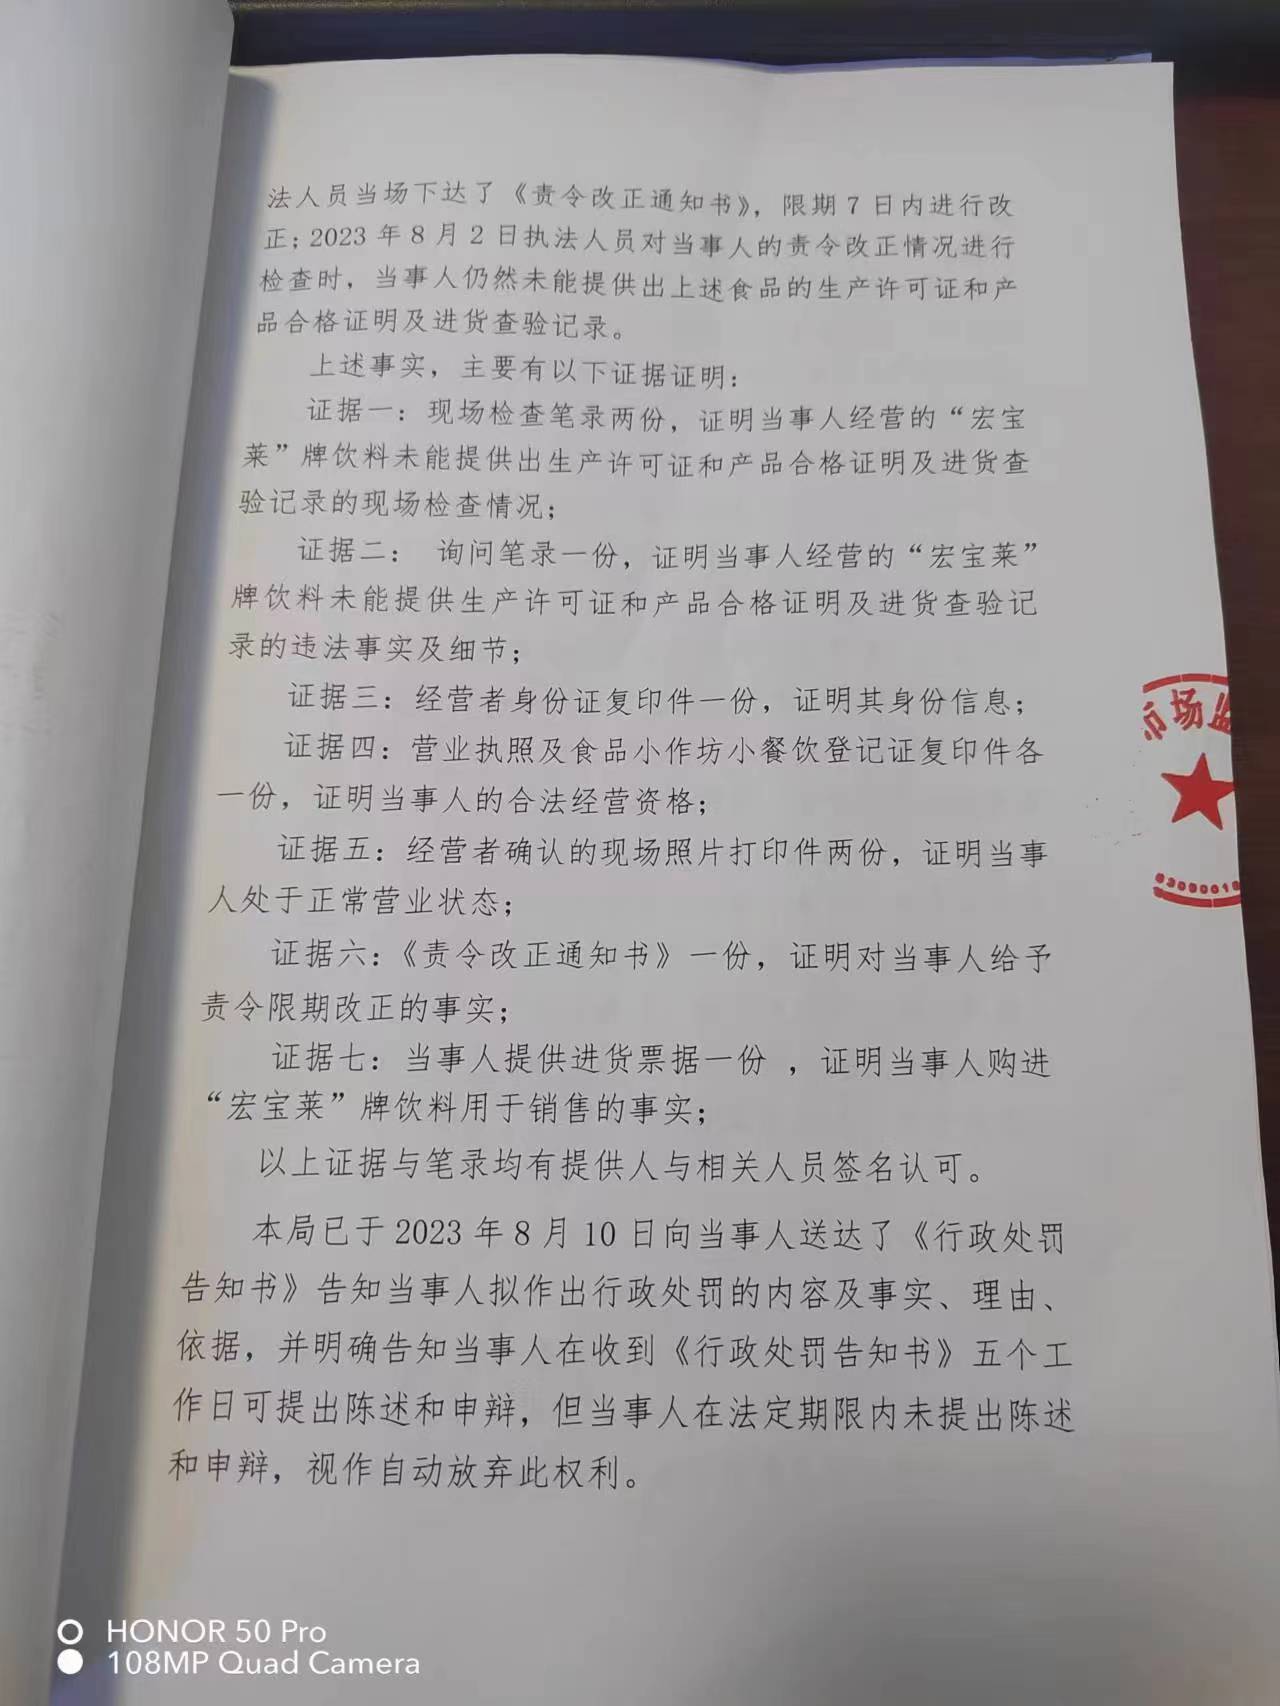 法人员当场下达了《责令改正通知书》，限期7日内进行改
正；2023年8月2日执法人员对当事人的责令改正情况进行
检查时，当事人仍然未能提供出上述食品的生产许可证和产
品合格证明及进货查验记录。
上述事实，主要有以下证据证明：
证据一：现场检查笔录两份，证明当事人经营的“宏宝
莱”牌饮料未能提供出生产许可证和产品合格证明及进货查
验记录的现场检查情况；
证据二： 询问笔录一份，证明当事人经营的“宏宝莱”
牌饮料未能提供生产许可证和产品合格证明及进货查验记
录的违法事实及细节；
证据三：经营者身份证复印件一份，证明其身份信息；
证据四：营业执照及食品小作坊小餐饮登记证复印件各
一份，证明当事人的合法经营资格；
证据五：经营者确认的现场照片打印件两份，证明当事
人处于正常营业状态；
证据六：《责令改正通知书》一份，证明对当事人给予
责令限期改正的事实；
证据七：当事人提供进货票据一份 ，证明当事人购进
“宏宝莱”牌饮料用于销售的事实；
以上证据与笔录均有提供人与相关人员签名认可。
本局已于2023年8月10日向当事人送达了《行政处罚
告知书》告知当事人拟作出行政处罚的内容及事实、理由、
依据，并明确告知当事人在收到《行政处罚告知书》五个工
作日可提出陈述和申辩，但当事人在法定期限内未提出陈述
和申辩，视作自动放弃此权利。
市场监
HONOR 50 Pro
108MP Quad Camera